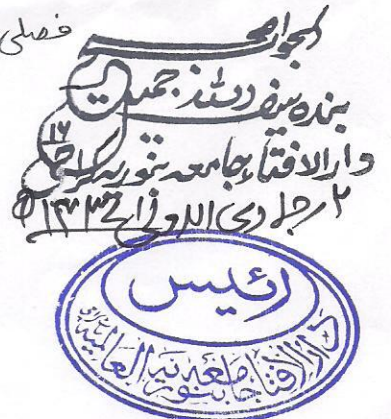 فصلی
الجواب صحیح
بندہ سیف اللہ جمیل
دارالافتاء جامعہ بنوریہ کراچی
۱۶
۲ / جمادی الاولی
رئیس
دار الافتاء جامعة بنورية العالمية